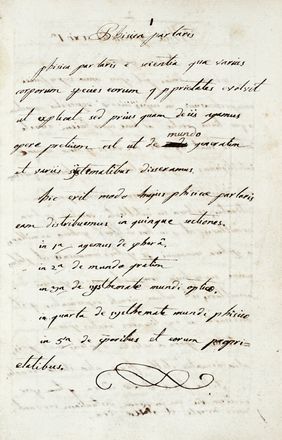 1
Phisica partaris
phisica partaris e scientia qua varias
corporum species eorum q pprietates evolvit
ut explicat sed prius quam de iis agamus
opere pretium est ut de mundo generatim
et variis systematibus disseramus.
hic erit modo hujus phisicae partaris
eam distribuemus in quinque sectiones.
in 1a agemus de spherâ.
in 2a de mundo pretim
in 3a de systhemate mundi optico
in quarta de systhemate mundi phisico
in 5a de corporibus et eorum propri-
etatibus.